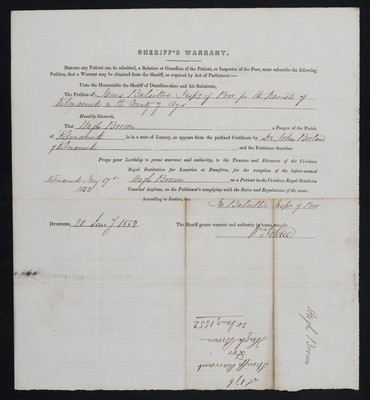 SHERIFF'S WARRANT.
BEFORE any Patient can be admitted, a Relation or Guardian of the Patient, or Inspector of the Poor, must subscribe the following
Petition, that a Warrant may be obtained from the Sheriff, as required by Act of Parliament :—
Unto the Honourable the Sheriff of Dumfries-shire and his Substitute,
The Petition of James Inspr of Poor for the Parish of
Kilmarnock in the County of Ayr
Humbly Sheweth,
That Hugh Brown a Pauper of the Parish
of Kilmarnock is in a state of Lunacy, as appears from the prefixed Certificate by Dr John
of Kilmarnock and the Petitioner therefore
Prays your Lordship to grant warrant and authority, to the Trustees and Directors of the Crichton
Royal Institution for Lunatics at Dumfries, for the reception of the before-named
Kilmarnock Jany 19th Hugh Brown as a Patient in the Crichton Royal Southern
1852 Counties' Asylum, on the Petitioner's complying with the Rules and Regulations of the same.
According to Justice, &c.
Inspr of Poor
DUMFRIES, 20 Jany 1852 The Sheriff grants warrant and authority in terms
Hugh Brown
Sheriff's Warrant
For
Hugh Brown
20 Jany 1852